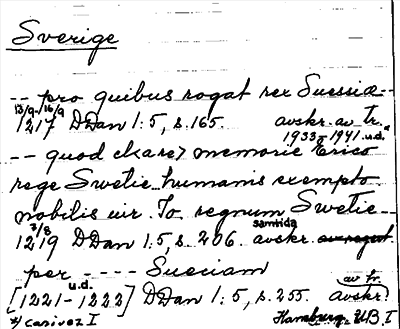 Sverige
-- pro quibus rogat rex Suessie --
13/9-16/9
1217 DDan 1:5, s. 165. avskr. av tr.
1933-1941 u.d.
-- quod cl<are> memorie Erico
rege Swetie humanis exempto
nobilis uir. Jo. regnum Swetie --
samtida
3/8
1219 DDan 1:5, s. 206. avskr.
per ---- Sueciam
u.d. av tr.
[1221-1222] DDan 1:5, s. 255. avskr.
*) Hamburg UB I